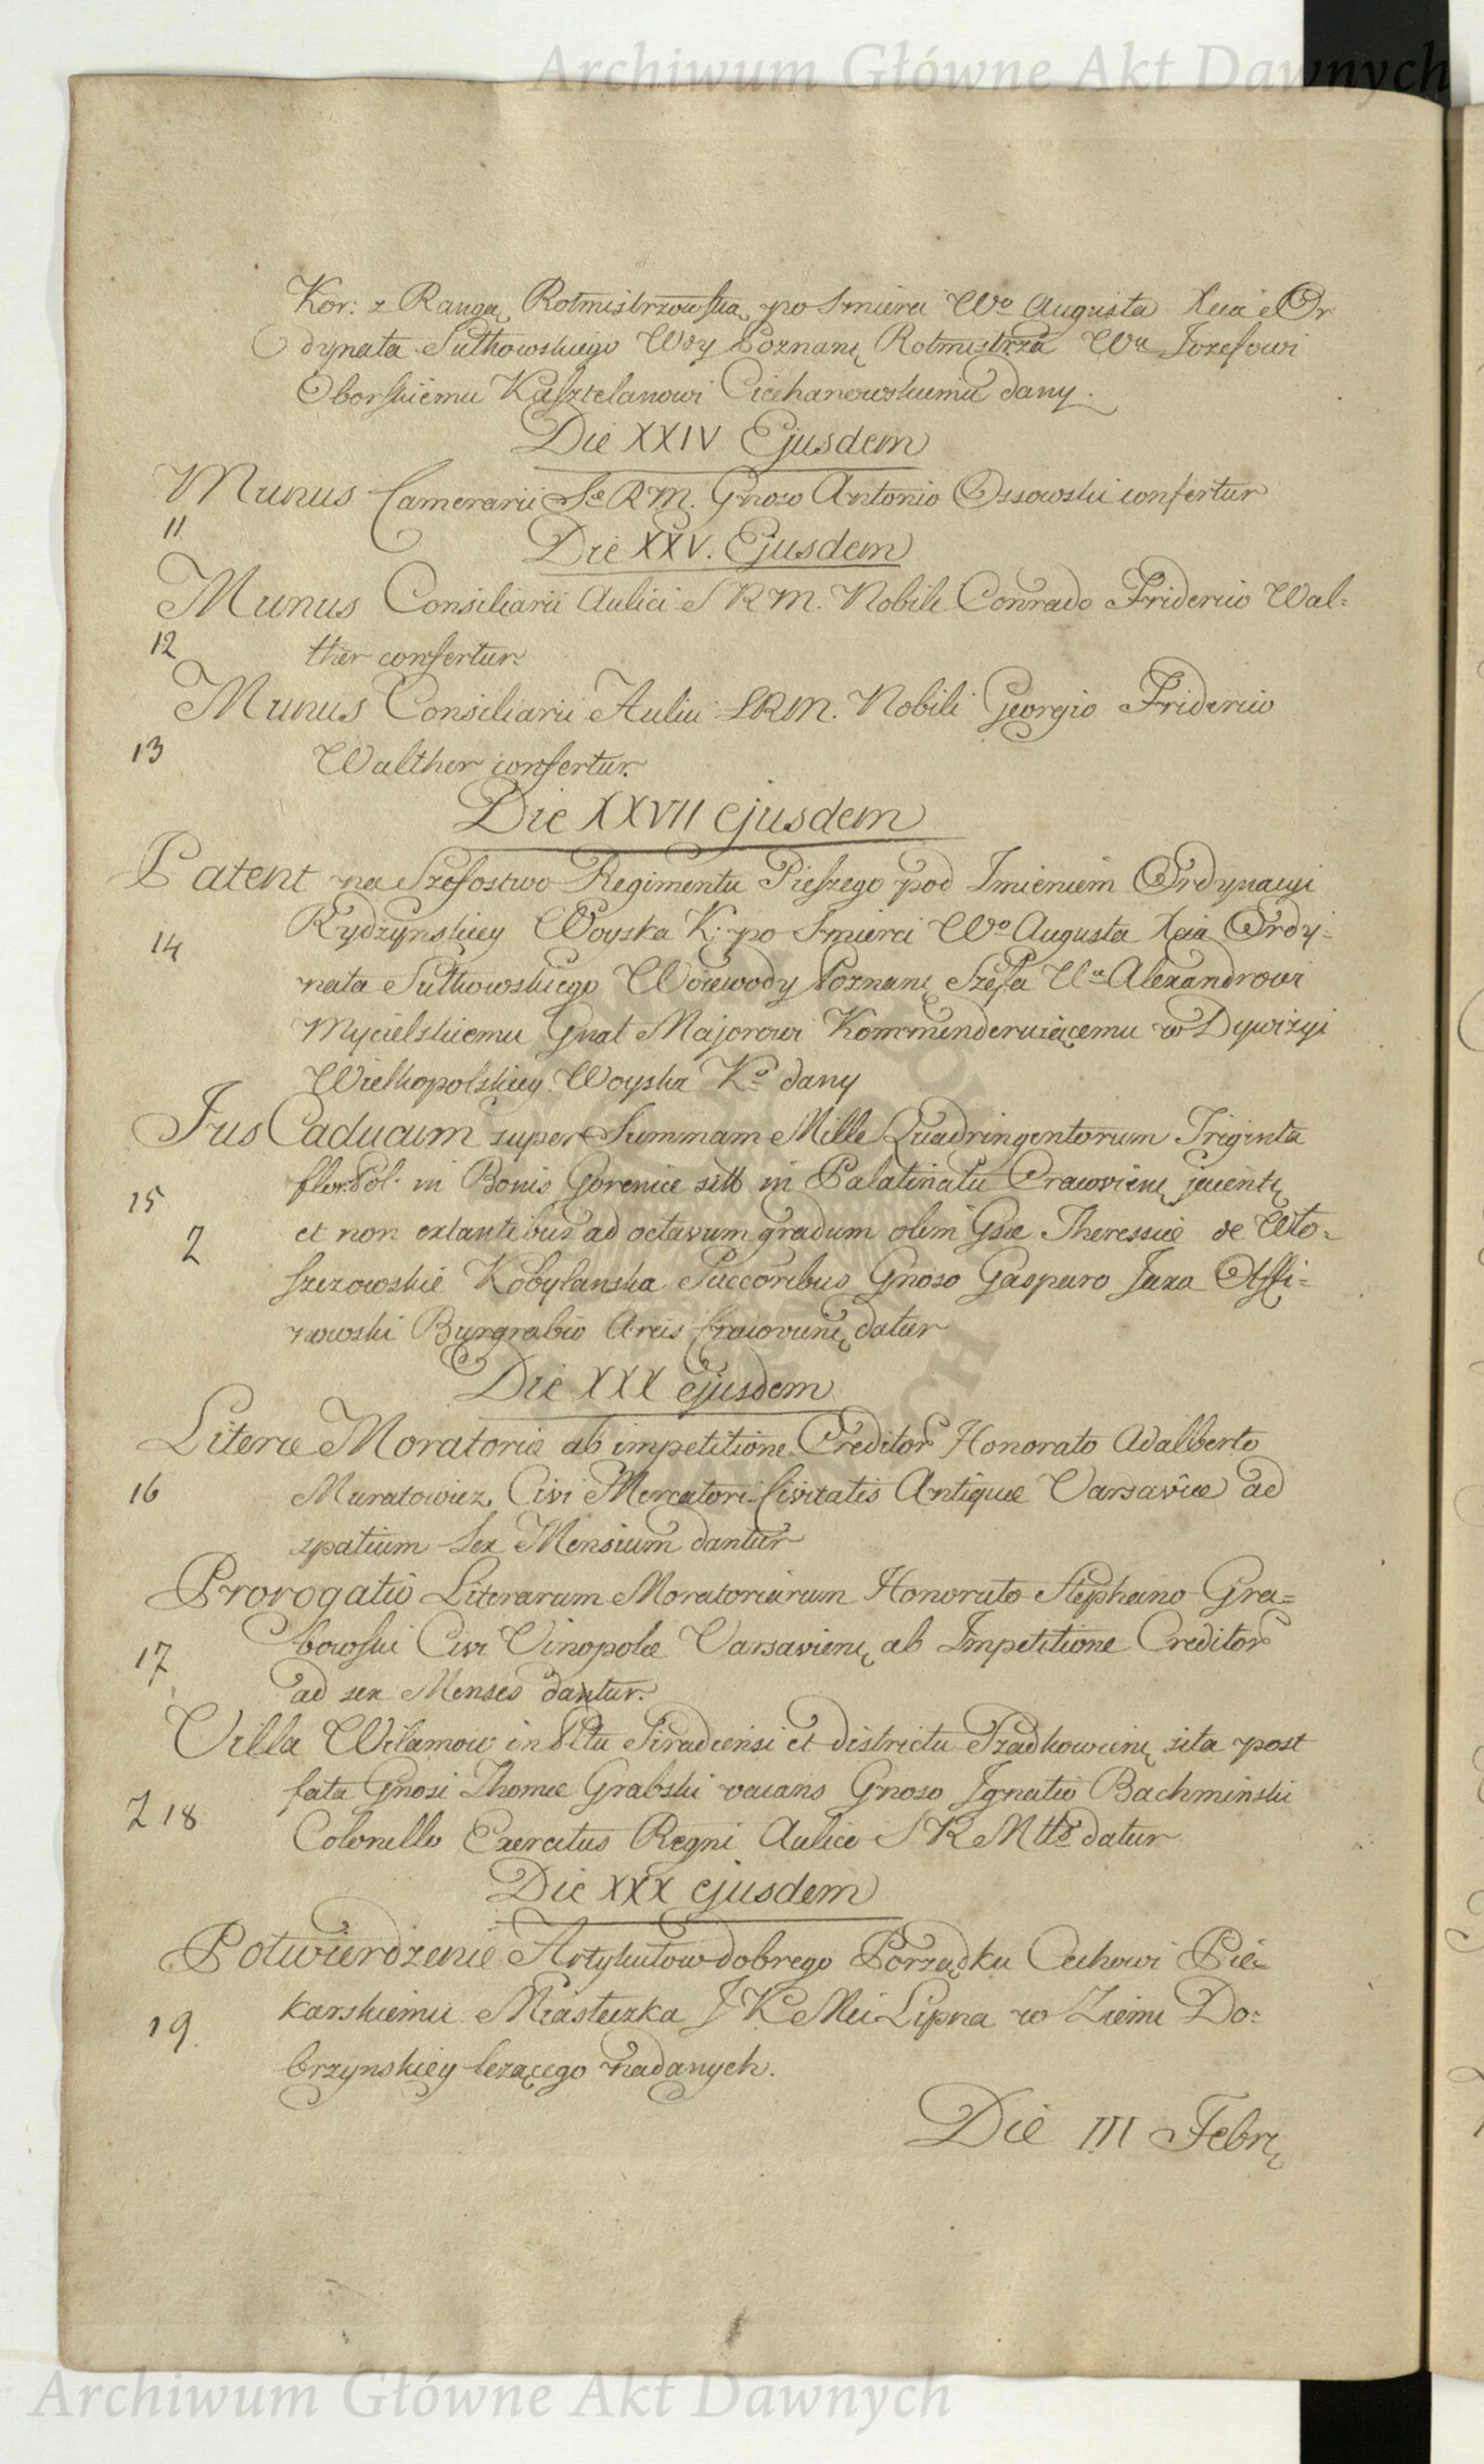 Archiwum Główne Akt Dawnych
Kor: z Rangą Rotmistrzowską po Smierci Wo Augusta Xcia Or
dynata Sułkowskiego Woy Poznanę Rotmistrza Wu Jozefowi
Oborskiemu Kasztelanowi Ciechanowskiemu dany.
Die XXIV Ejusdem
Munus Camerarii Se R M. Gnoso Antonio Ossowski confertur
11
Die XXV. Ejusdem
Munus Consiliarii Aulici S R M. Nobili Conrado Friderico Wal=
12
ther confertur.
Munus Consiliarii Aulici S R M. Nobili Georgio Friderico
13 Walther confertur.
Die XXVII ejusdem
Patent na Szefostwo Regimentu Pieszego pod Imieniem Ordynacyi
14 Rydzynskiey Woyska K: po Smierci Wo Augusta Xcia Ordy=
nata Sułkowskiego Woiewody Poznanę Szefa Ue Alexandrowi
Mycielskiemu Gnał Majorowi Kommenderuiącemu w Dywizyi
Wielkopolskiey Woyska Ko dany
Jus Caducum super Summam Mille Quadringentorum Triginta
15 flor: Pol. in Bonis Gorenice sitt in Palatinatu Cracovienę jacentę
2 et non extantibus ad octavum gradum olim Gsæ Theressiæ de Wto=
szczowskie Kobylanska Succoribus Gnoso Gasparo Jaxa Otffi=
nowski Burgrabio Arcis Craiovienę datur
Die XXX ejusdem
Literæ Moratoriæ ab impetitione Creditor Honorato Adalberto
16 Muratowicz Civi Mercatori Civitatis Antiquæ Varsaviæ ad
spatium Sex Mensium dantur
Prorogatio Literarum Moratoriarum Honorato Stephano Gra=
17 bowski Civi Vinopolæ Varsavienę ab Impetitione Creditor
ad sex Menses dantur.
Villa Wilamow in Pltu Siradiensi et districtu Szadkowienę sita post
Z 18 fata Gnosi Thomæ Grabski vacans Gnoso Ignatio Bachminski
Colonello Exercitus Regni Aulico S R Mtts datur
Die XXX ejusdem
Potwierdzenie Artykułow dobrego Porządku Cechowi Pie=
19. karskiemu Miasteczka J K Mci Lipna w Ziemi Do=
brzynskiey leżącego nadanych.
Die III Febrę
Archiwum Główne Akt Dawnych